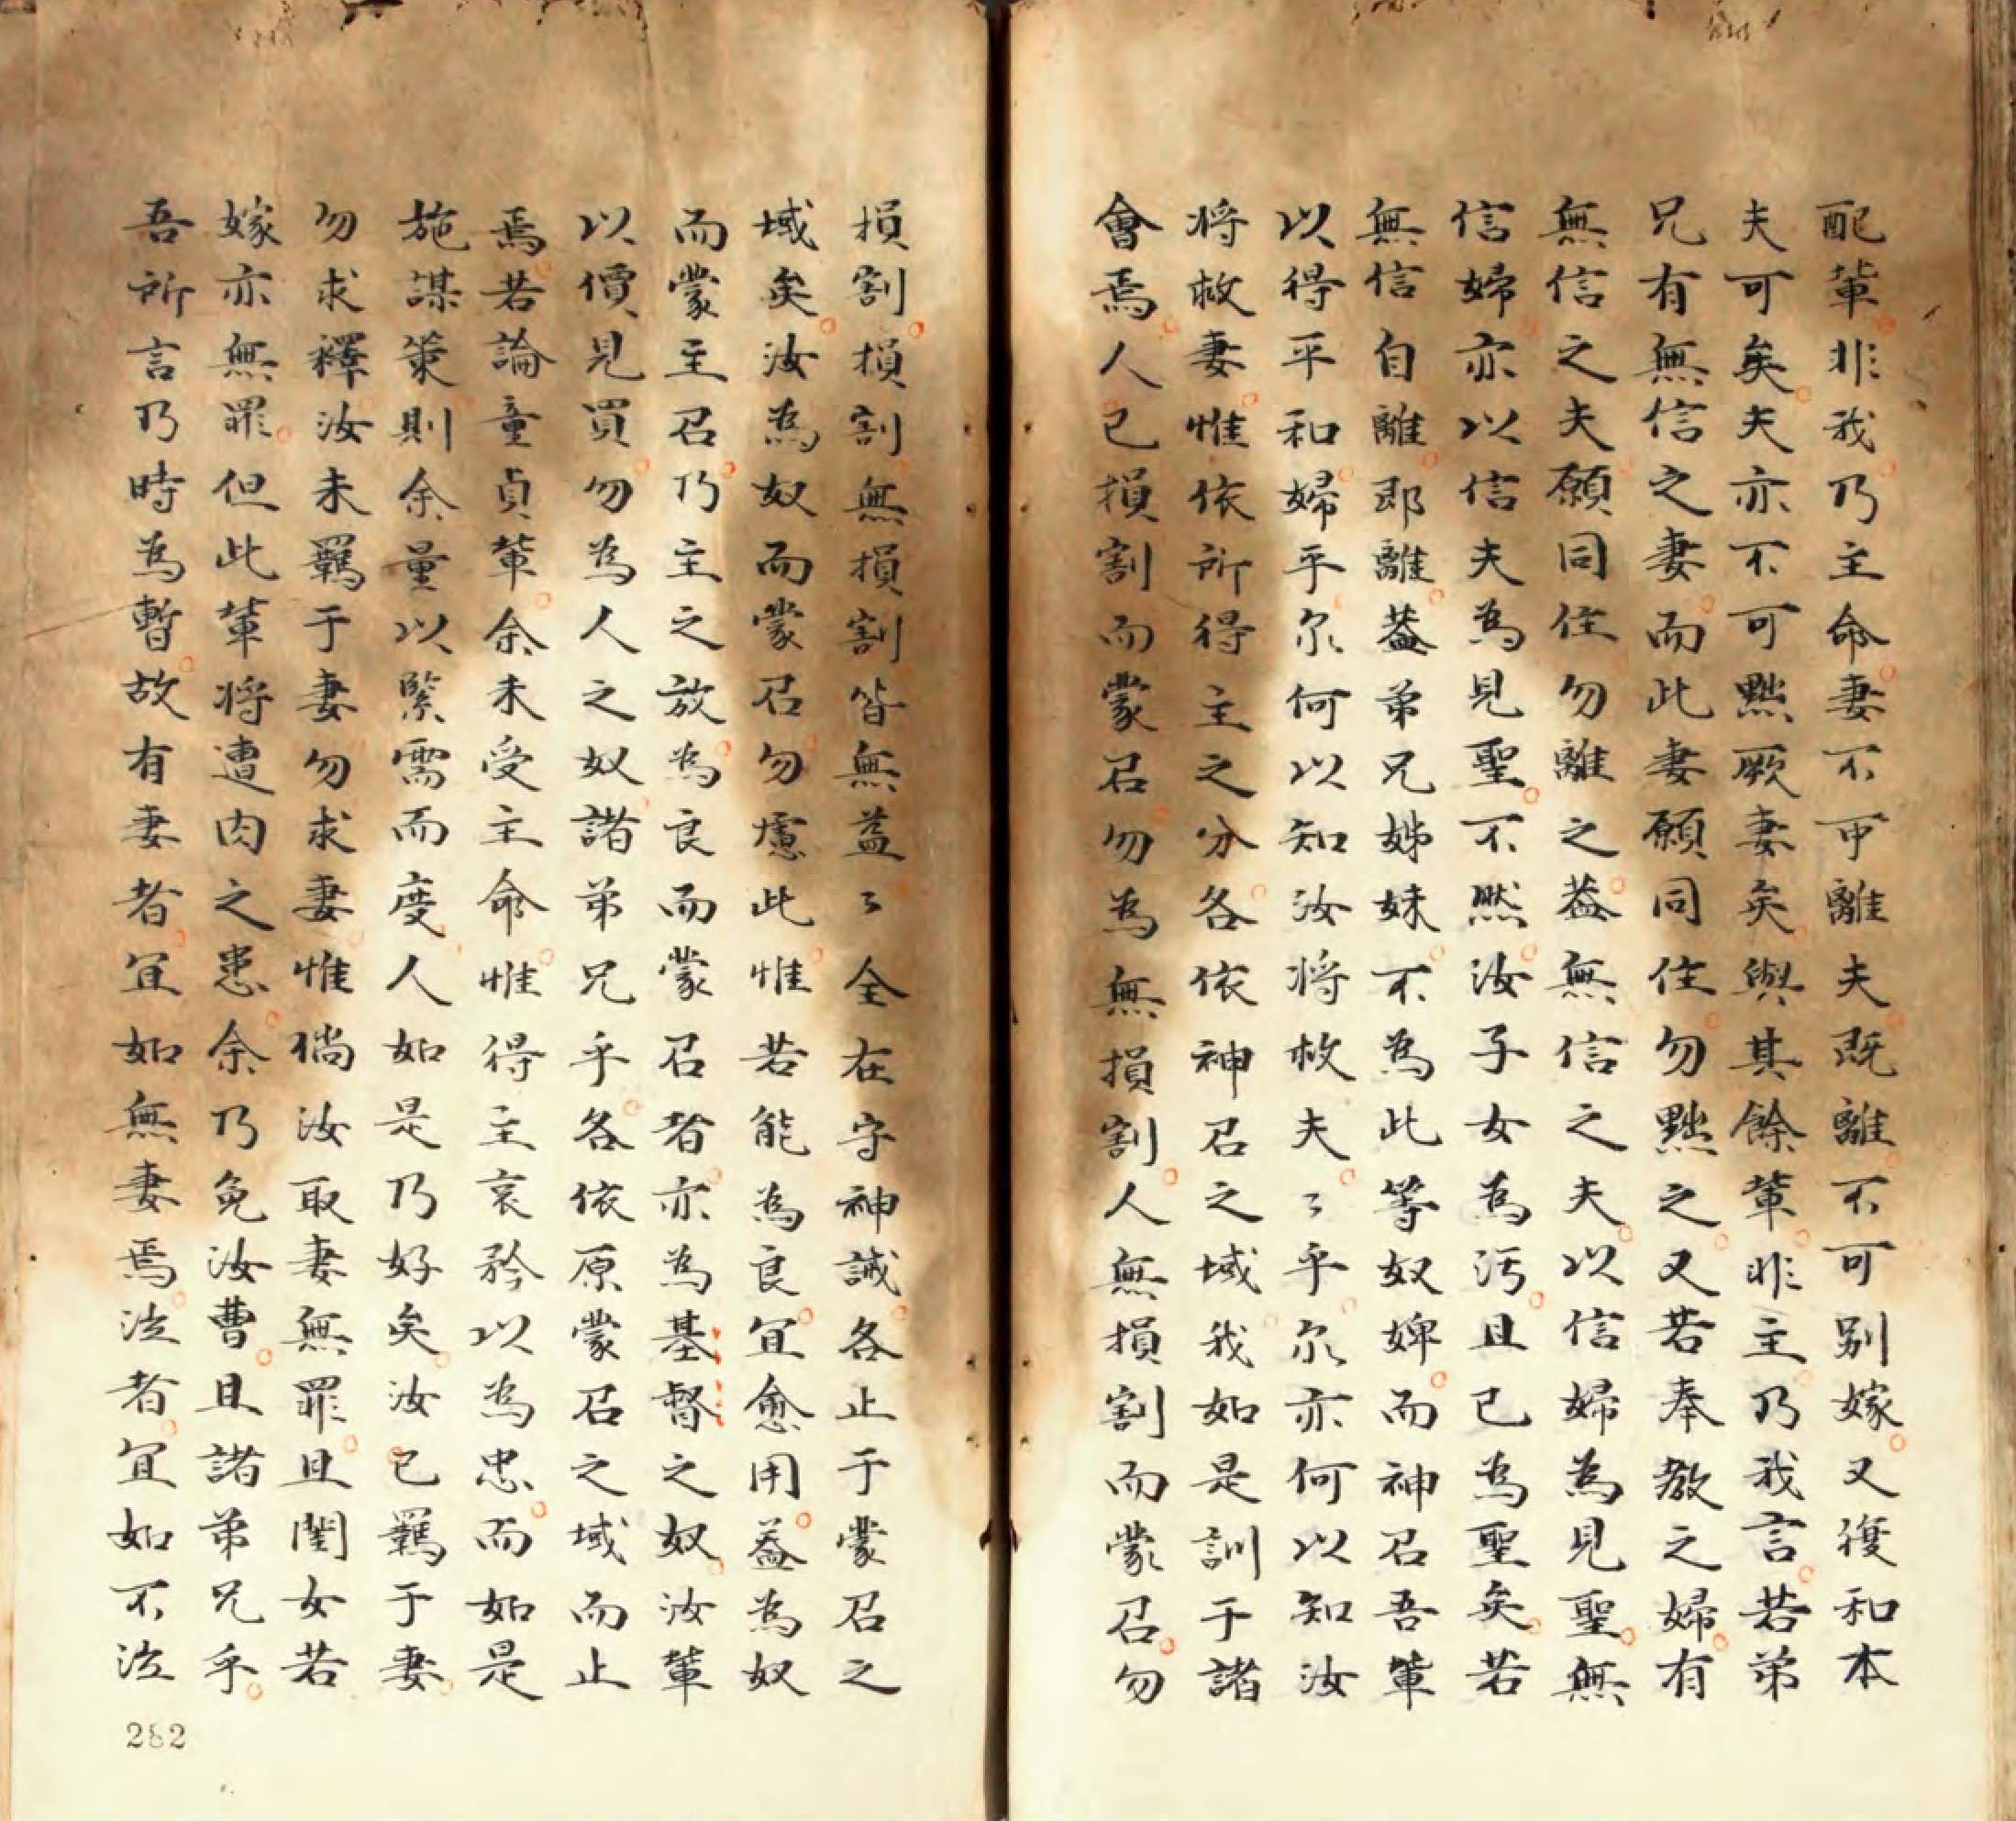 配軰非我乃主命妻不可離夫既離不可別嫁又復和本
夫可矣夫亦不可黜厥妻矣與其餘軰非主乃我言若弟
兄有無信之妻而此妻願同住勿黜之又若奉教之婦有
無信之夫願同住勿離之葢無信之夫以信婦為見聖無
信婦亦以信夫為見聖不然汝子女為污且已為聖矣若
無信自離即離葢弟兄姊妹不為此等奴婢而神召吾軰
以得平和婦乎尔何以知汝將救夫〻乎尔亦何以知汝
将救妻惟依所得主之分各依神召之域我如是訓于諸
會焉人已損割而蒙召勿為無損割人無損割而蒙召勿
損割損割無損割皆無益〻全在守神誡各止于蒙召之
域矣汝為奴而蒙召勿慮此惟若能為良宜愈用葢為奴
而蒙主召乃主之放為良而蒙召者亦為基督之奴汝軰
以價見買勿為人之奴諸弟兄乎各依原蒙召之域而止
焉若論童貞軰余未受主命惟得主哀矜以為忠而如是
施謀策則余量以緊需而度人如是乃好矣汝已羈于妻
勿求釋汝未羈于妻勿求妻惟倘汝取妻無罪且閨女若
嫁亦無罪但此軰将遭肉之患余乃免汝曹且諸弟兄乎
吾所言乃時為暫故有妻者宜如無妻焉泣者宜如不泣
282